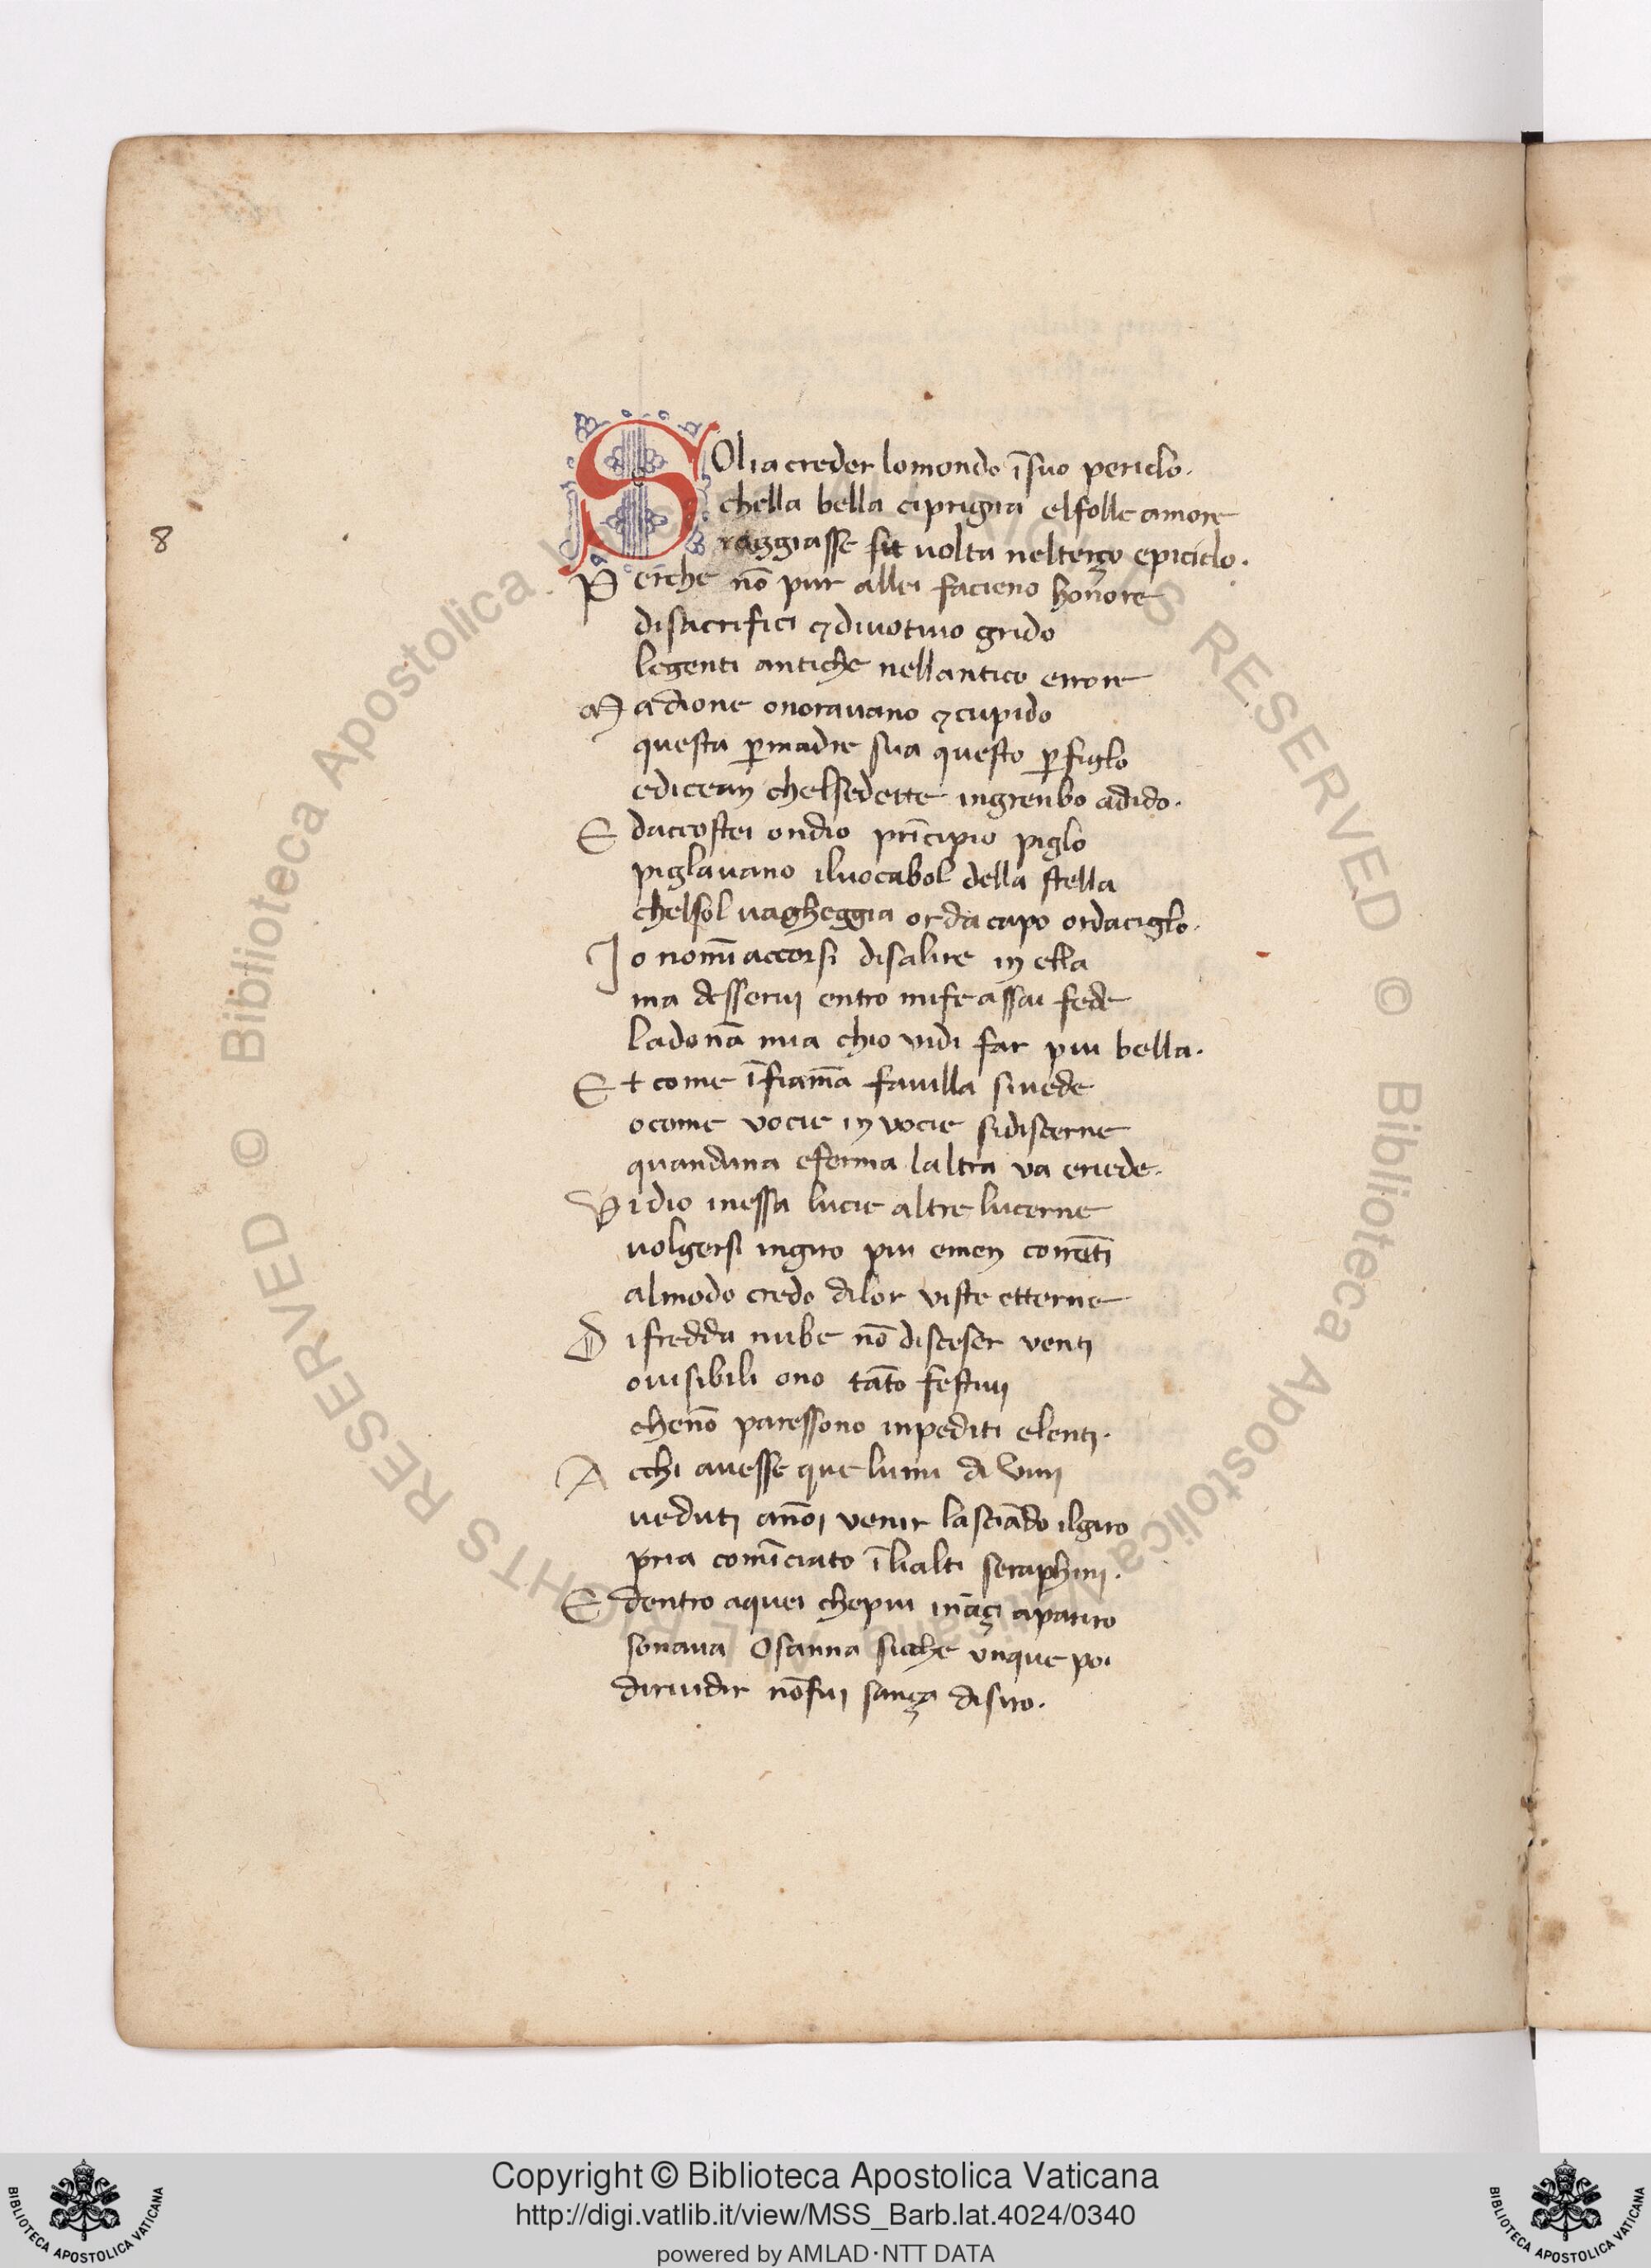 8
SOlia creder lomondo ĩsuo periclo.
chella bella ciprigna elfolle amore
raggiasse sit uolta nelterço epiciclo.
Perche nõ pur allei facieno honore
disacrifici ⁊diuotiuo grido
legenti antiche nellantico errore
Ma dione onorauano ⁊cupido
questa p̲madre sua questo p̲figlo
edicean chelsedette ingrenbo adido.
E dacostei ondio prĩcipio piglo
piglauano iluocabol della stella
chelsol uagheggia orda capo ordaciglo.
Io nomĩ accorsi disalire in ella
ma desserui entro mife assai fede
ladonã mia chio vidi far piu bella.
Et come ĩfiam̃a fauilla siuede
ocome vocie in vocie sidiscerne
quanduna eferma laltra va eriede.
Vidio inessa lucie altre lucerne
uolgersi ingiro piu emen correñti
almodo credo dilor viste etterne
Difredda nube nõ discieser venti
ouisibili ono tãto festiui
chenõ paressono inpediti elenti.
A cchi auesse que lumi diuini
ueduti anõi venir lasciãdo ilgiro
pria comĩciato ĩ lialti seraphini.
E dentro aquei chepiu inãçi apariro
sonaua Osanna sicche vnque poi
diriudir nõfui sança disiro.
Copyright © Biblioteca Apostolica Vaticana
http://digi.vatlib.it/view/MSS_Barb.lat.4024/0340
powered by AMLAD·NTT DATA
BIBLIOTECA APOSTOLICA VATICANA
BIBLIOTECA APOSTOLICA VATICANA
Biblioteca Apostolica Vaticana ALL RIGHTS RESERVED ©
Biblioteca Apostolica Vaticana ALL RIGHTS RESERVED ©